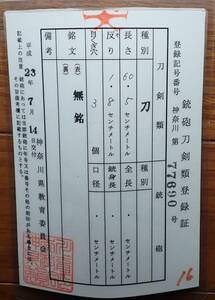 登録記号番号 神奈川 第77690号
銃砲刀剣類登録証
刀剣類
銃砲
種別
刀
種別
長さ
60.5センチメートル
全長
センチメートル
反り
1.8センチメートル
銃身長
センチメートル
目くぎ穴
3個
口径
センチメートル
銘文
(表)
無銘
(裏)
備考
平成23年7月14日交付
神奈川県教育委員会
記載上の注意
16